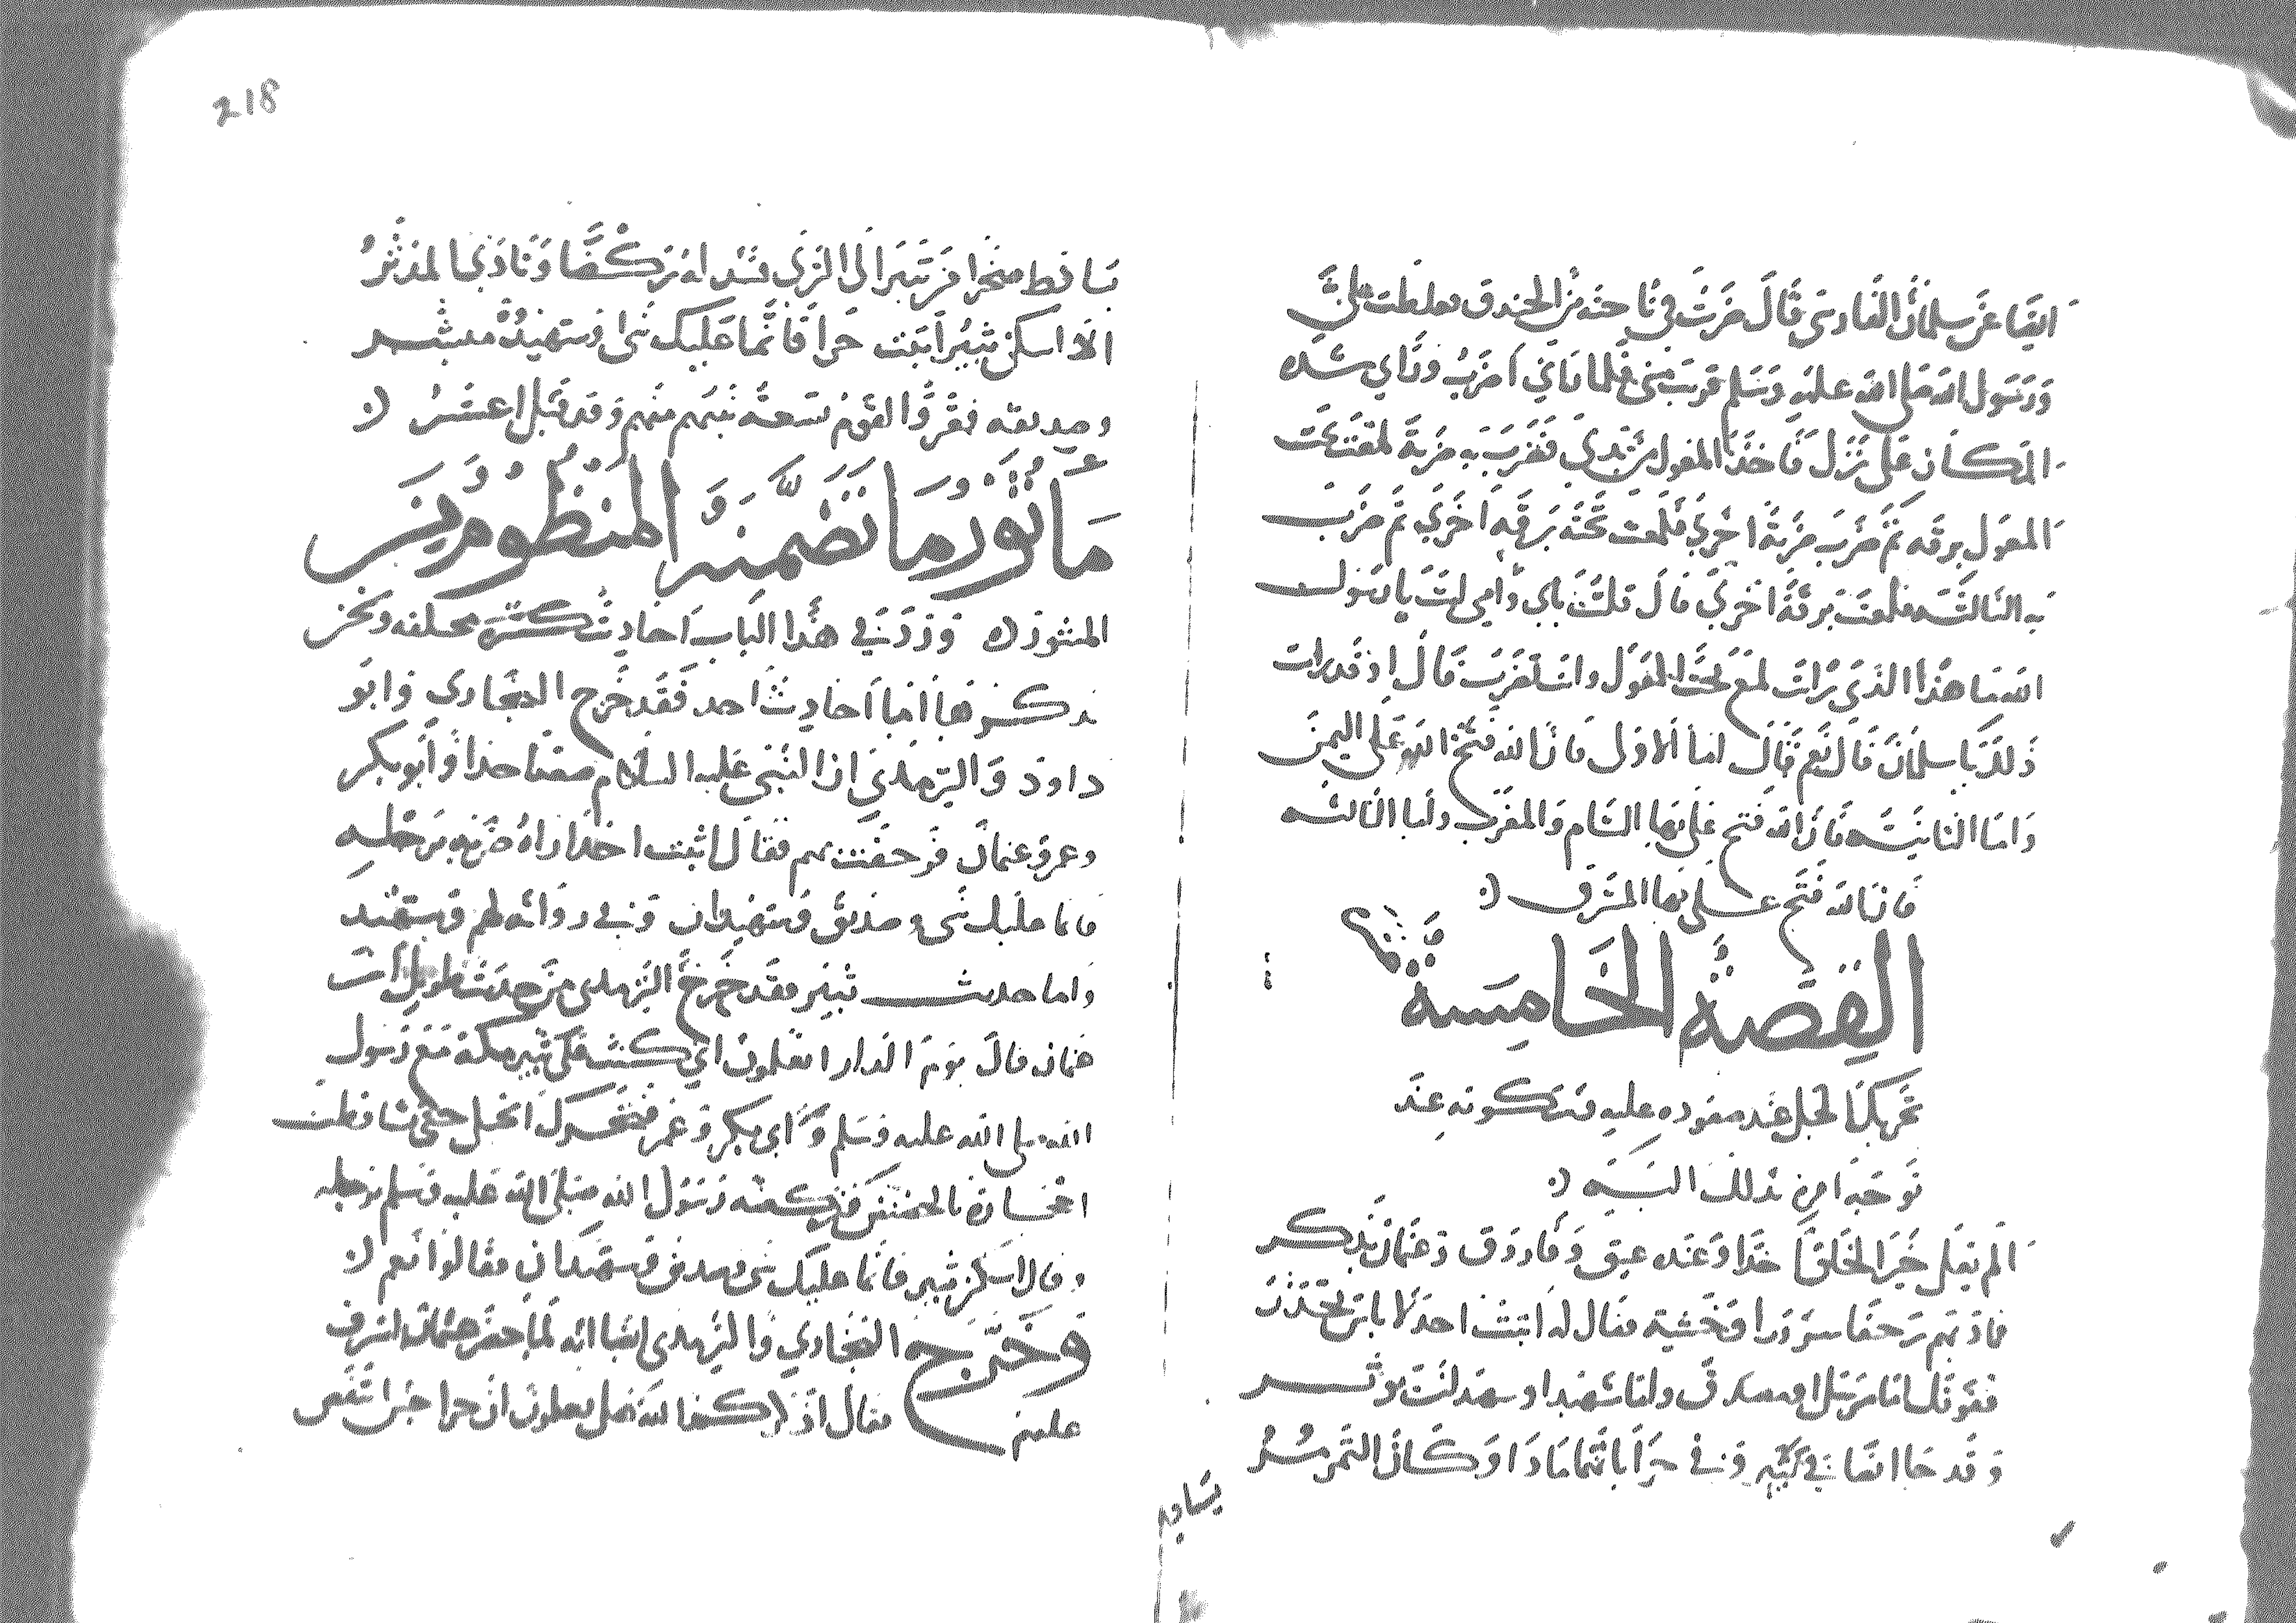 ايضا عن سلمان الفارسى قال ضربت في ناحية من الخندق فغلظت علىّ
ورسول الله صلى الله عليه وسلم قريب منى فلما راني اضرب وراي شده
المكان على نزل فاخذ المعول من يدي فضرب به ضربة لمعت تحت
المعول برقه ثم ضرب ضربة اخرى فلمعت تحته برقه اخري ثم ضرب
به الثالثه فلمعت برقة اخري قال قلت بابي وامي انت يا رسول
الله ما هذا الذي رايت لمع تحت المعول وانت تضرب قال او قد رايت
ذلك يا سلمان قال نعم قال اما الاولى فان الله فتح الله على اليمن
واما الثانيه فان الله فتح على بها الشام والمغرب واما الثالثه
فان الله فتح على بها المشرق
القصة الخامسة
تحريك الجبل عند صعوده عليه وسكونه عند
توجه امره بذلك اليه
الم يعل خير الخلق احدا وعنده عتيق وفاروق وعثمان يذكر
فاذ بهم رجفا سرورا وخشية فقال له اثبت احد لا باس تحذر
فقوقك اما مرسل او مصدق واما شهيدا وسهد انت موثر
وقد جا ايضا في ثبير وفي حرا بانهما مادا وكان الثمر مسر
يساقط
218
تساقط صخرا من ثبير الى الثرى فشد له ركضا ونادى المدثر
الا اسكن ثبير اثبت حرا فانما عليك نبي او شهيد مبشر
وصديقه فقر والقوم تسعة نبيهم منهم وقد قيل اعشر
مانور ما تضمنه المنظوم من
المنثور وردت في هذا الباب احاديث كثيرة مختلفه ونحن
نذكرها اما احاديث احد فقد خرج البخارى وابو
داود والترمذي ان النبي عليه السلام صعد احدا وابو بكر
وعمر وعثمان فرجفت بهم فقال اثبت احد اراه ضربه برجله
فانما عليك نبى وصديق وشهيدان وفي روايه لهم وشهيد
واما حديث ثبير فقد خرج الترمذى من حديث طويل ان
عثمان قال يوم الدار اتعلمون اني كنت على ثبير مكة مع رسول
الله صلى الله عليه وسلم وابي بكر وعمر فتحرك الجبل حتى تساقطت
احجاره بالحضيض فركضه رسول الله صلى الله عليه وسلم برجله
وقال اسكن ثبير فانما عليك نبى وصديق وشهيدان فقالوا نعم
وخرج البخاري والترمذى ايضا انه لما حصر عثمان اشرف
عليهم فقال اذكركم الله هل تعلمون ان حرا حين انتفض